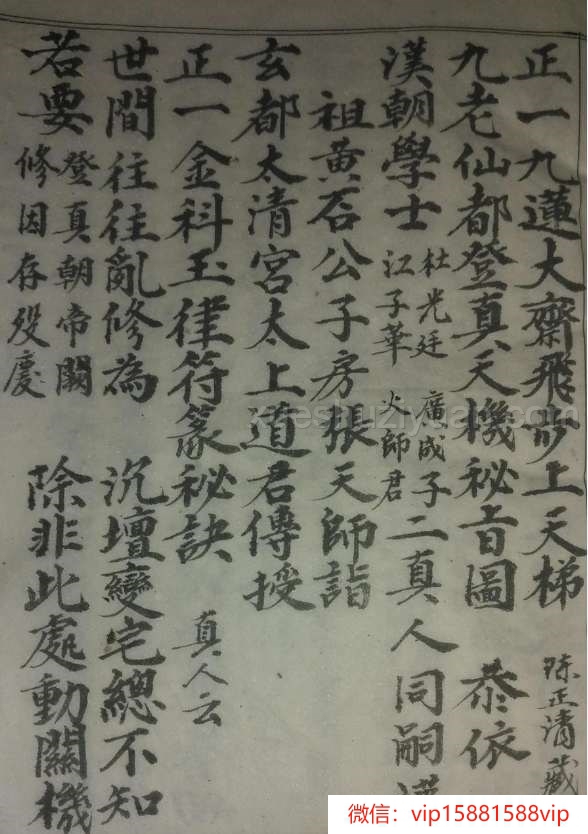 正一九蓮大齋飛步上天梯
陈正清藏
九老仙都登真天機秘旨圖 恭依
漢朝學士
杜光廷 廣成子
江子華 火師君
二真人同嗣漢
祖黃石公子房張天師詣
玄都太清宮太上道君傳授
正一金科玉律符篆秘訣 真人云
世間往往亂修為 沉壇變宅總不知
若要
登真朝帝闕
修因存殁慶
除非此處動關機
微信：vip15881588vip